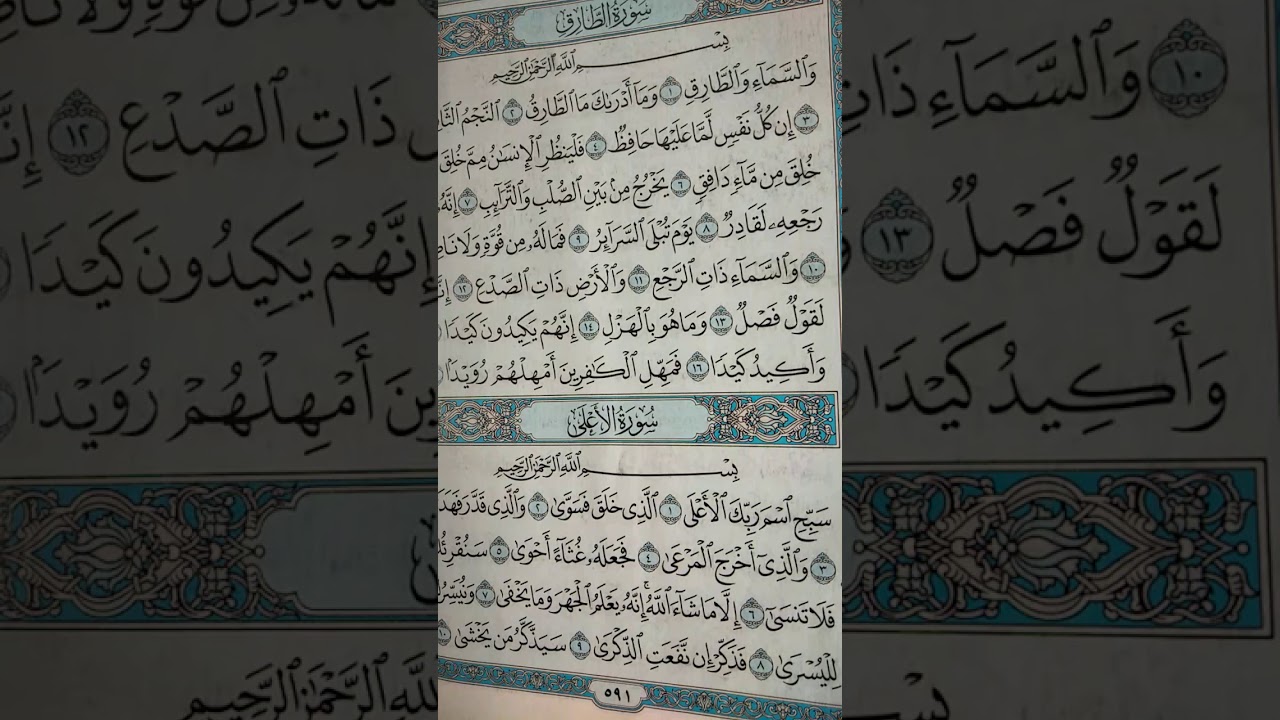 سُورَةُ الطَّارِقِ
بِسْمِ ٱللَّهِ ٱلرَّحْمَٰنِ ٱلرَّحِيمِ
وَٱلسَّمَآءِ وَٱلطَّارِقِ ١ وَمَآ أَدْرَىٰكَ مَا ٱلطَّارِقُ ٢ ٱلنَّجْمُ
٣ إِن كُلُّ نَفْسٍ لَّمَّا عَلَيْهَا حَافِظٌ ٤ فَلْيَنظُرِ ٱلْإِنسَٰنُ مِمَّ خُلِقَ
خُلِقَ مِن مَّآءٍ دَافِقٍ ٦ يَخْرُجُ مِنۢ بَيْنِ ٱلصُّلْبِ وَٱلتَّرَآئِبِ ٧
رَجْعِهِۦ لَقَادِرٌ ٨ يَوْمَ تُبْلَى ٱلسَّرَآئِرُ ٩ فَمَا لَهُۥ مِن قُوَّةٍ وَلَا
١٠ وَٱلسَّمَآءِ ذَاتِ ٱلرَّجْعِ ١١ وَٱلْأَرْضِ ذَاتِ ٱلصَّدْعِ ١٢
لَقَوْلٌ فَصْلٌ ١٣ وَمَا هُوَ بِٱلْهَزْلِ ١٤ إِنَّهُمْ يَكِيدُونَ كَيْدًا
وَأَكِيدُ كَيْدًا ١٦ فَمَهِّلِ ٱلْكَٰفِرِينَ أَمْهِلْهُمْ رُوَيْدًۢا
سُورَةُ الأَعْلَىٰ
بِسْمِ ٱللَّهِ ٱلرَّحْمَٰنِ ٱلرَّحِيمِ
سَبِّحِ ٱسْمَ رَبِّكَ ٱلْأَعْلَى ١ ٱلَّذِى خَلَقَ فَسَوَّىٰ ٢ وَٱلَّذِى قَدَّرَ
٣ وَٱلَّذِىٓ أَخْرَجَ ٱلْمَرْعَىٰ ٤ فَجَعَلَهُۥ غُثَآءً أَحْوَىٰ ٥
فَلَا تَنسَىٰٓ ٦ إِلَّا مَا شَآءَ ٱللَّهُ ۚ إِنَّهُۥ يَعْلَمُ ٱلْجَهْرَ وَمَا يَخْفَىٰ ٧
لِلْيُسْرَىٰ ٨ فَذَكِّرْ إِن نَّفَعَتِ ٱلذِّكْرَىٰ ٩ سَيَذَّكَّرُ مَن يَخْشَىٰ ١٠
٥٩١